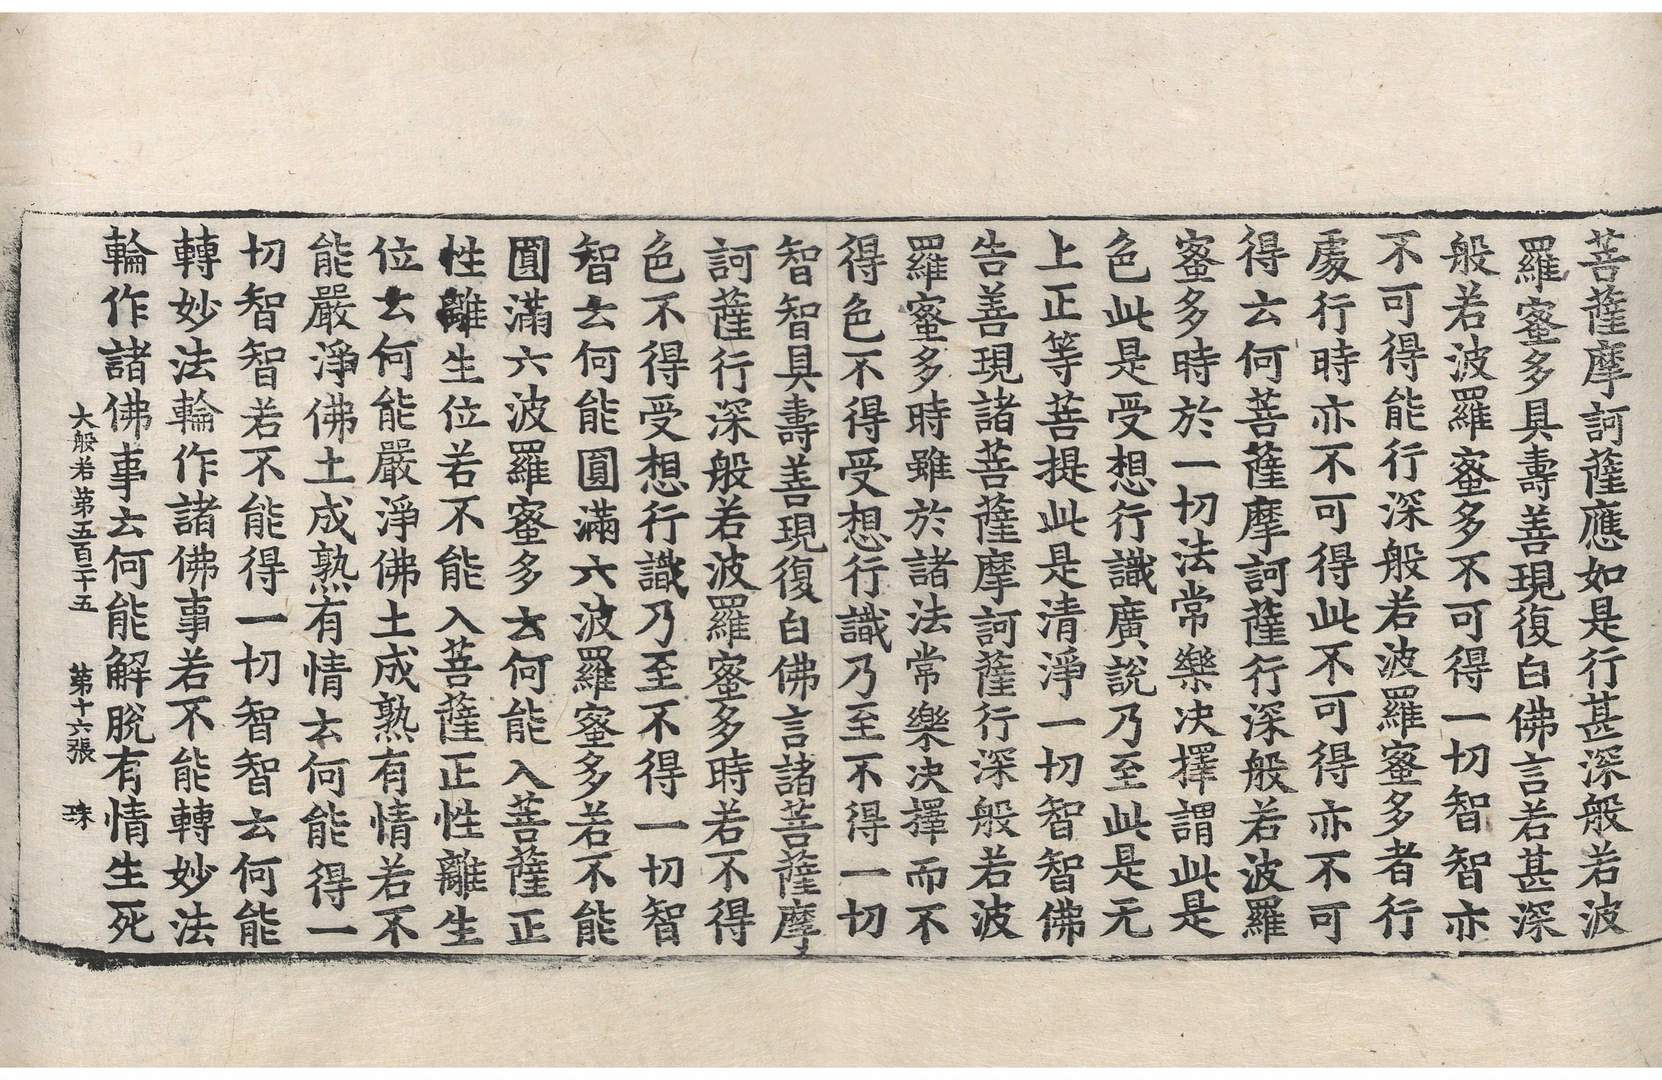 菩薩摩訶薩應如是行甚深般若波
羅蜜多具壽善現復白佛言若甚深
般若波羅蜜多不可得一切智智亦
不可得能行深般若波羅蜜多者行
處行時亦不可得此不可得亦不可
得云何菩薩摩訶薩行深般若波羅
蜜多時於一切法常樂决擇謂此是
色此是受想行識廣說乃至此是无
上正等菩提此是清淨一切智智佛
告善現諸菩薩摩訶薩行深般若波
羅蜜多時雖於諸法常樂决擇而不
得色不得受想行識乃至不得一切
智智具壽善現復白佛言諸菩薩摩
訶薩行深般若波羅蜜多時若不得
色不得受想行識乃至不得一切智
智云何能圓滿六波羅蜜多若不能
圓滿六波羅蜜多云何能入菩薩正
性離生位若不能入菩薩正性離生
位云何能嚴淨佛土成熟有情若不
能嚴淨佛土成熟有情云何能得一
切智智若不能得一切智智云何能
轉妙法輪作諸佛事若不能轉妙法
輪作諸佛事云何能解脫有情生死
大般若第五百二十五 第十六張 珠